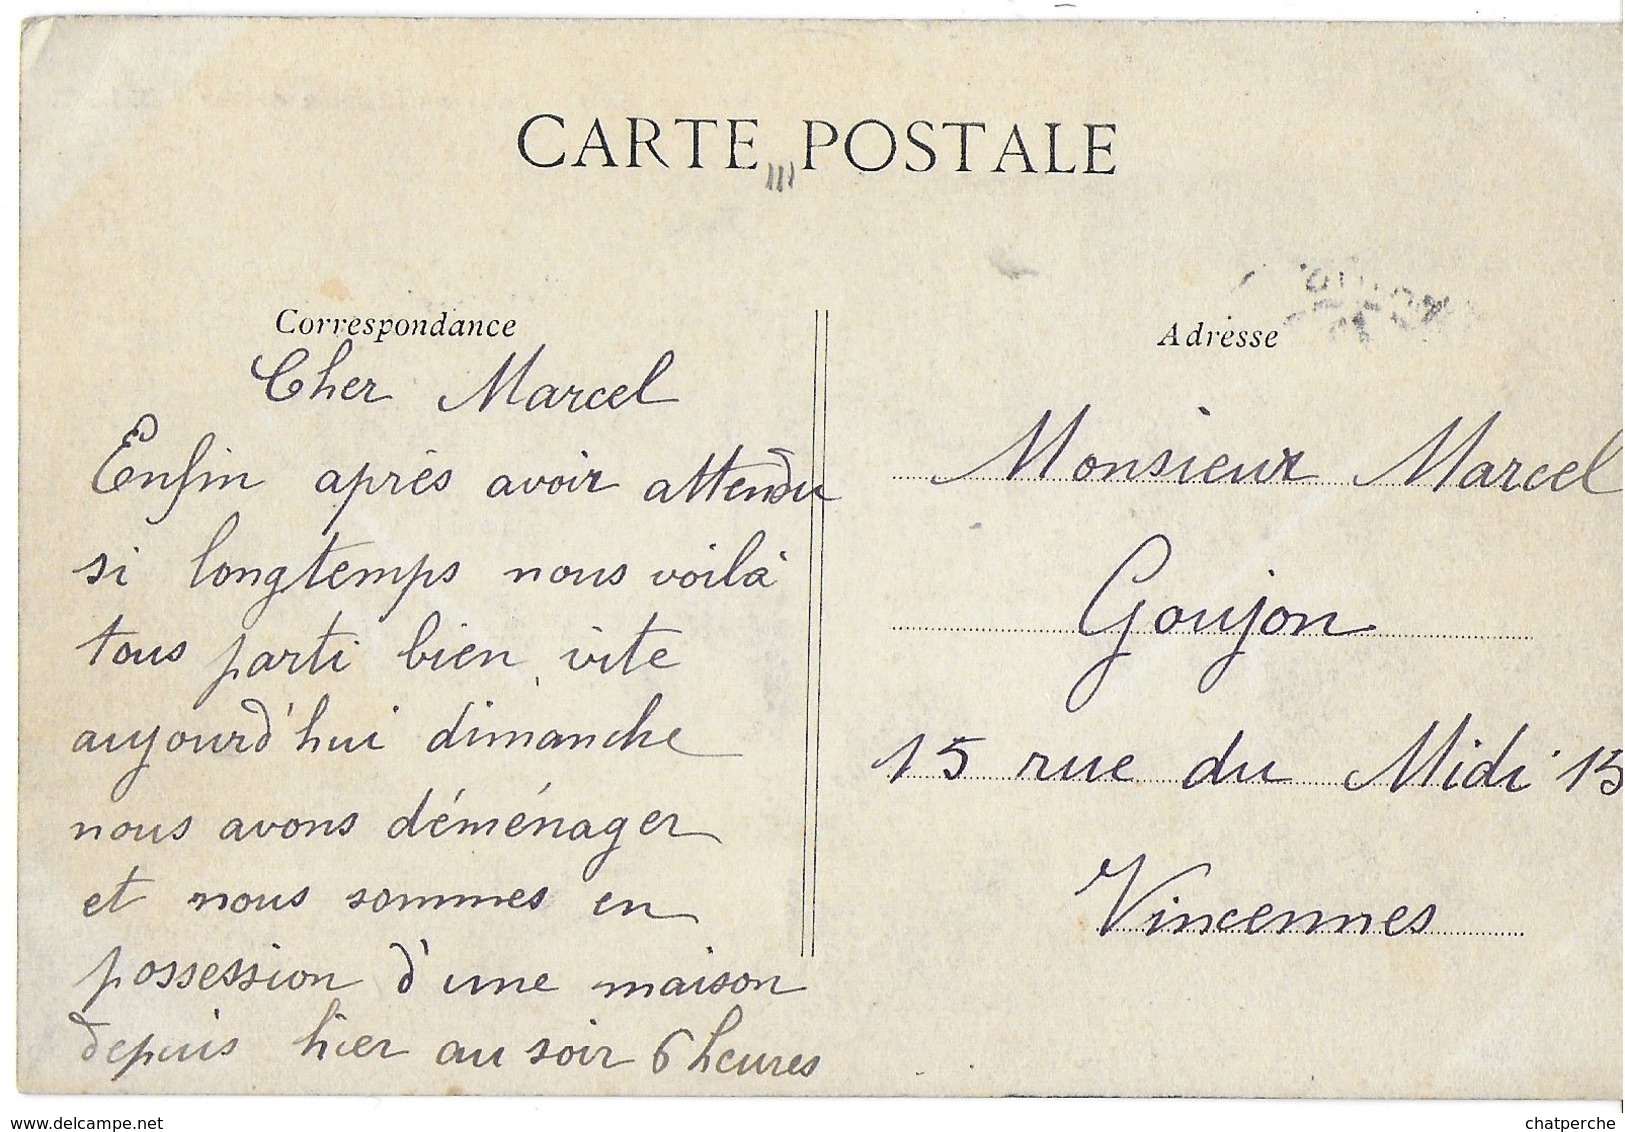 CARTE POSTALE
Correspondance
Cher Marcel
Enfin après avoir attendu
si longtemps nous voilà
tous parti bien vite
aujourd'hui dimanche
nous avons déménager
et nous sommes en
possession d'une maison
depuis hier au soir 6 heures
Adresse
Monsieur Marcel
Goujon
15 rue du Midi 15
Vincennes
www.delcampe.net
chatperche